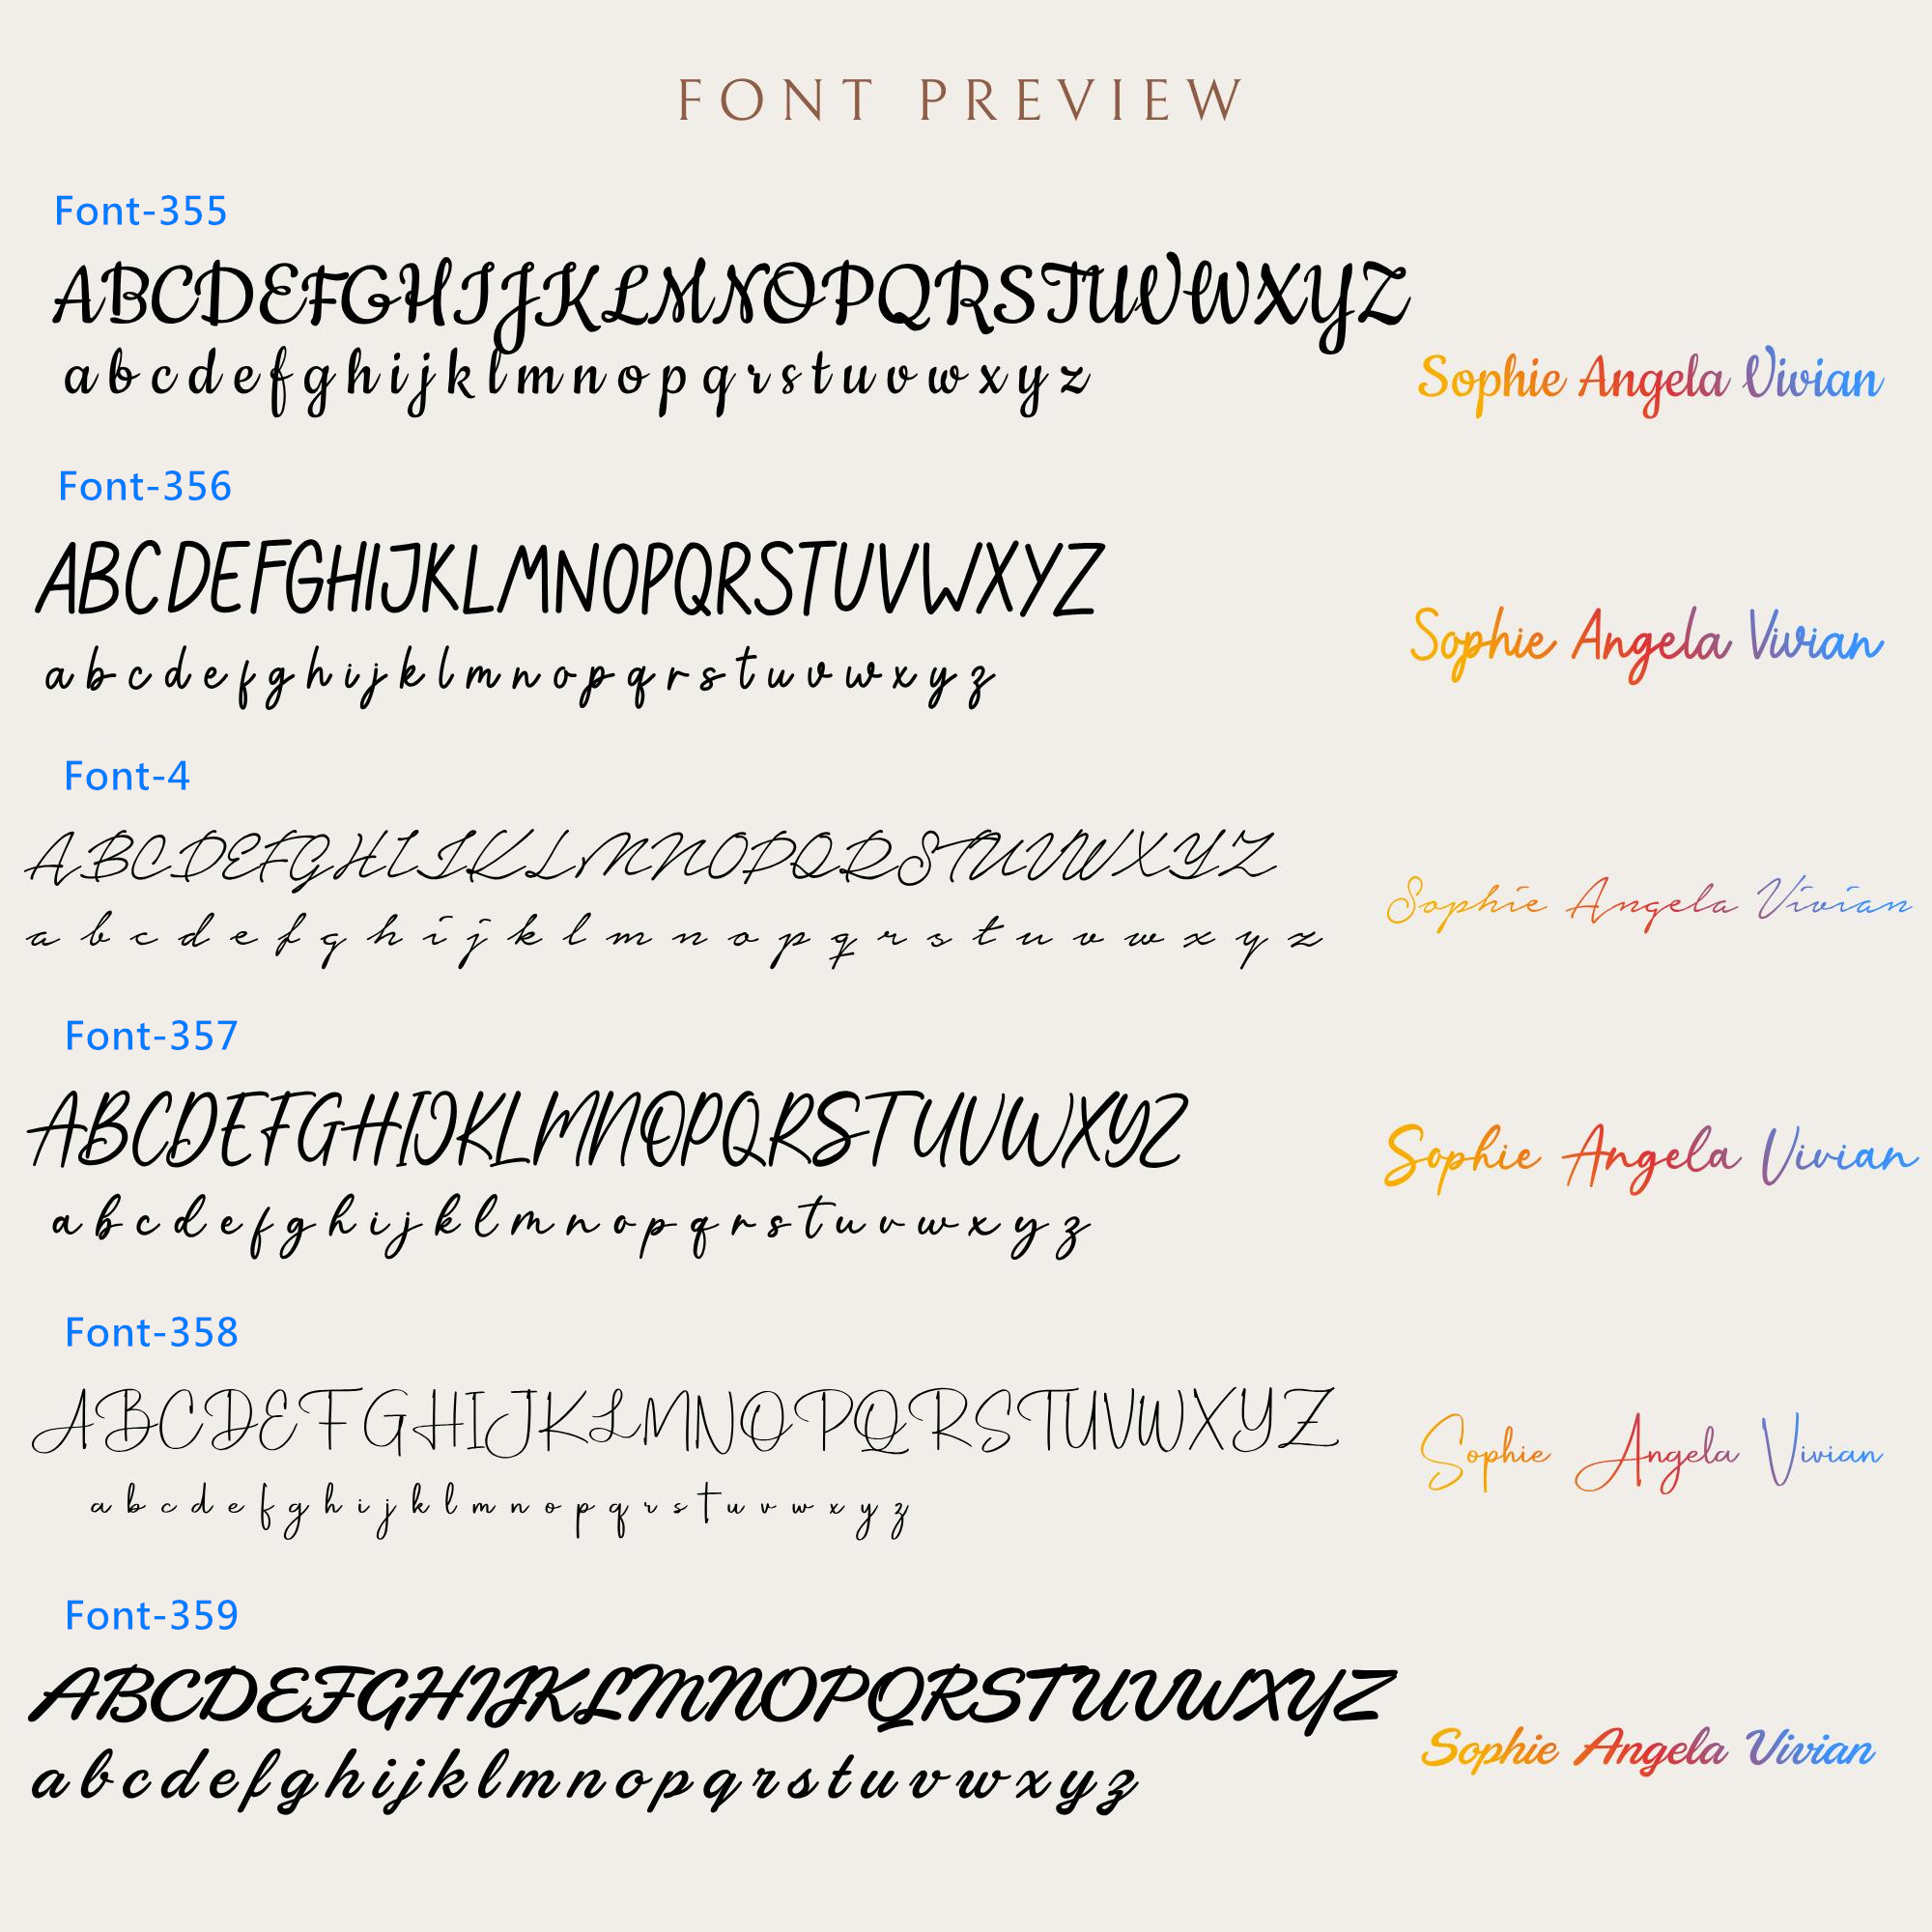 FONT PREVIEW
Font-355
ABCDEFGHIJKLMNOPQRSTUVWXYZ
abcdefghijklmnopqrstuvwxyz
Sophie Angela Vivian
Font-356
ABCDEFGHIJKLMNOPQRSTUVWXYZ
abcdefghijklmnopqrstuvwxyz
Sophie Angela Vivian
Font-4
ABCDEFGHIJKLMNOPQRSTUVWXYZ
a b c d e f g h i j k l m n o p q r s t u v w x y z
Sophie Angela Vivian
Font-357
ABCDEFGHIJKLMNOPQRSTUVWXYZ
a b c d e f g h i j k l m n o p q r s t u v w x y z
Sophie Angela Vivian
Font-358
ABCDEFGHIJKLMNOPQRSTUVWXYZ
a b c d e f g h i j k l m n o p q r s t u v w x y z
Sophie Angela Vivian
Font-359
ABCDEFGHIJKLMNOPQRSTUVWXYZ
abcdefghijklmnopqrstuvwxyz
Sophie Angela Vivian